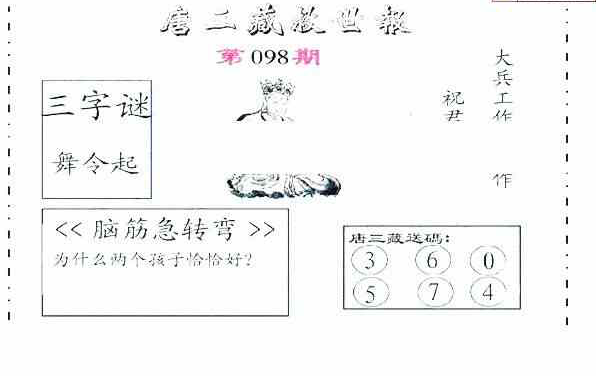 唐三藏救世報
第098期
大兵工作
祝君
作
三字谜
舞令起
<<脑筋急转弯>>
为什么两个孩子恰恰好?
唐三藏送码:
3 6 0
5 7 4